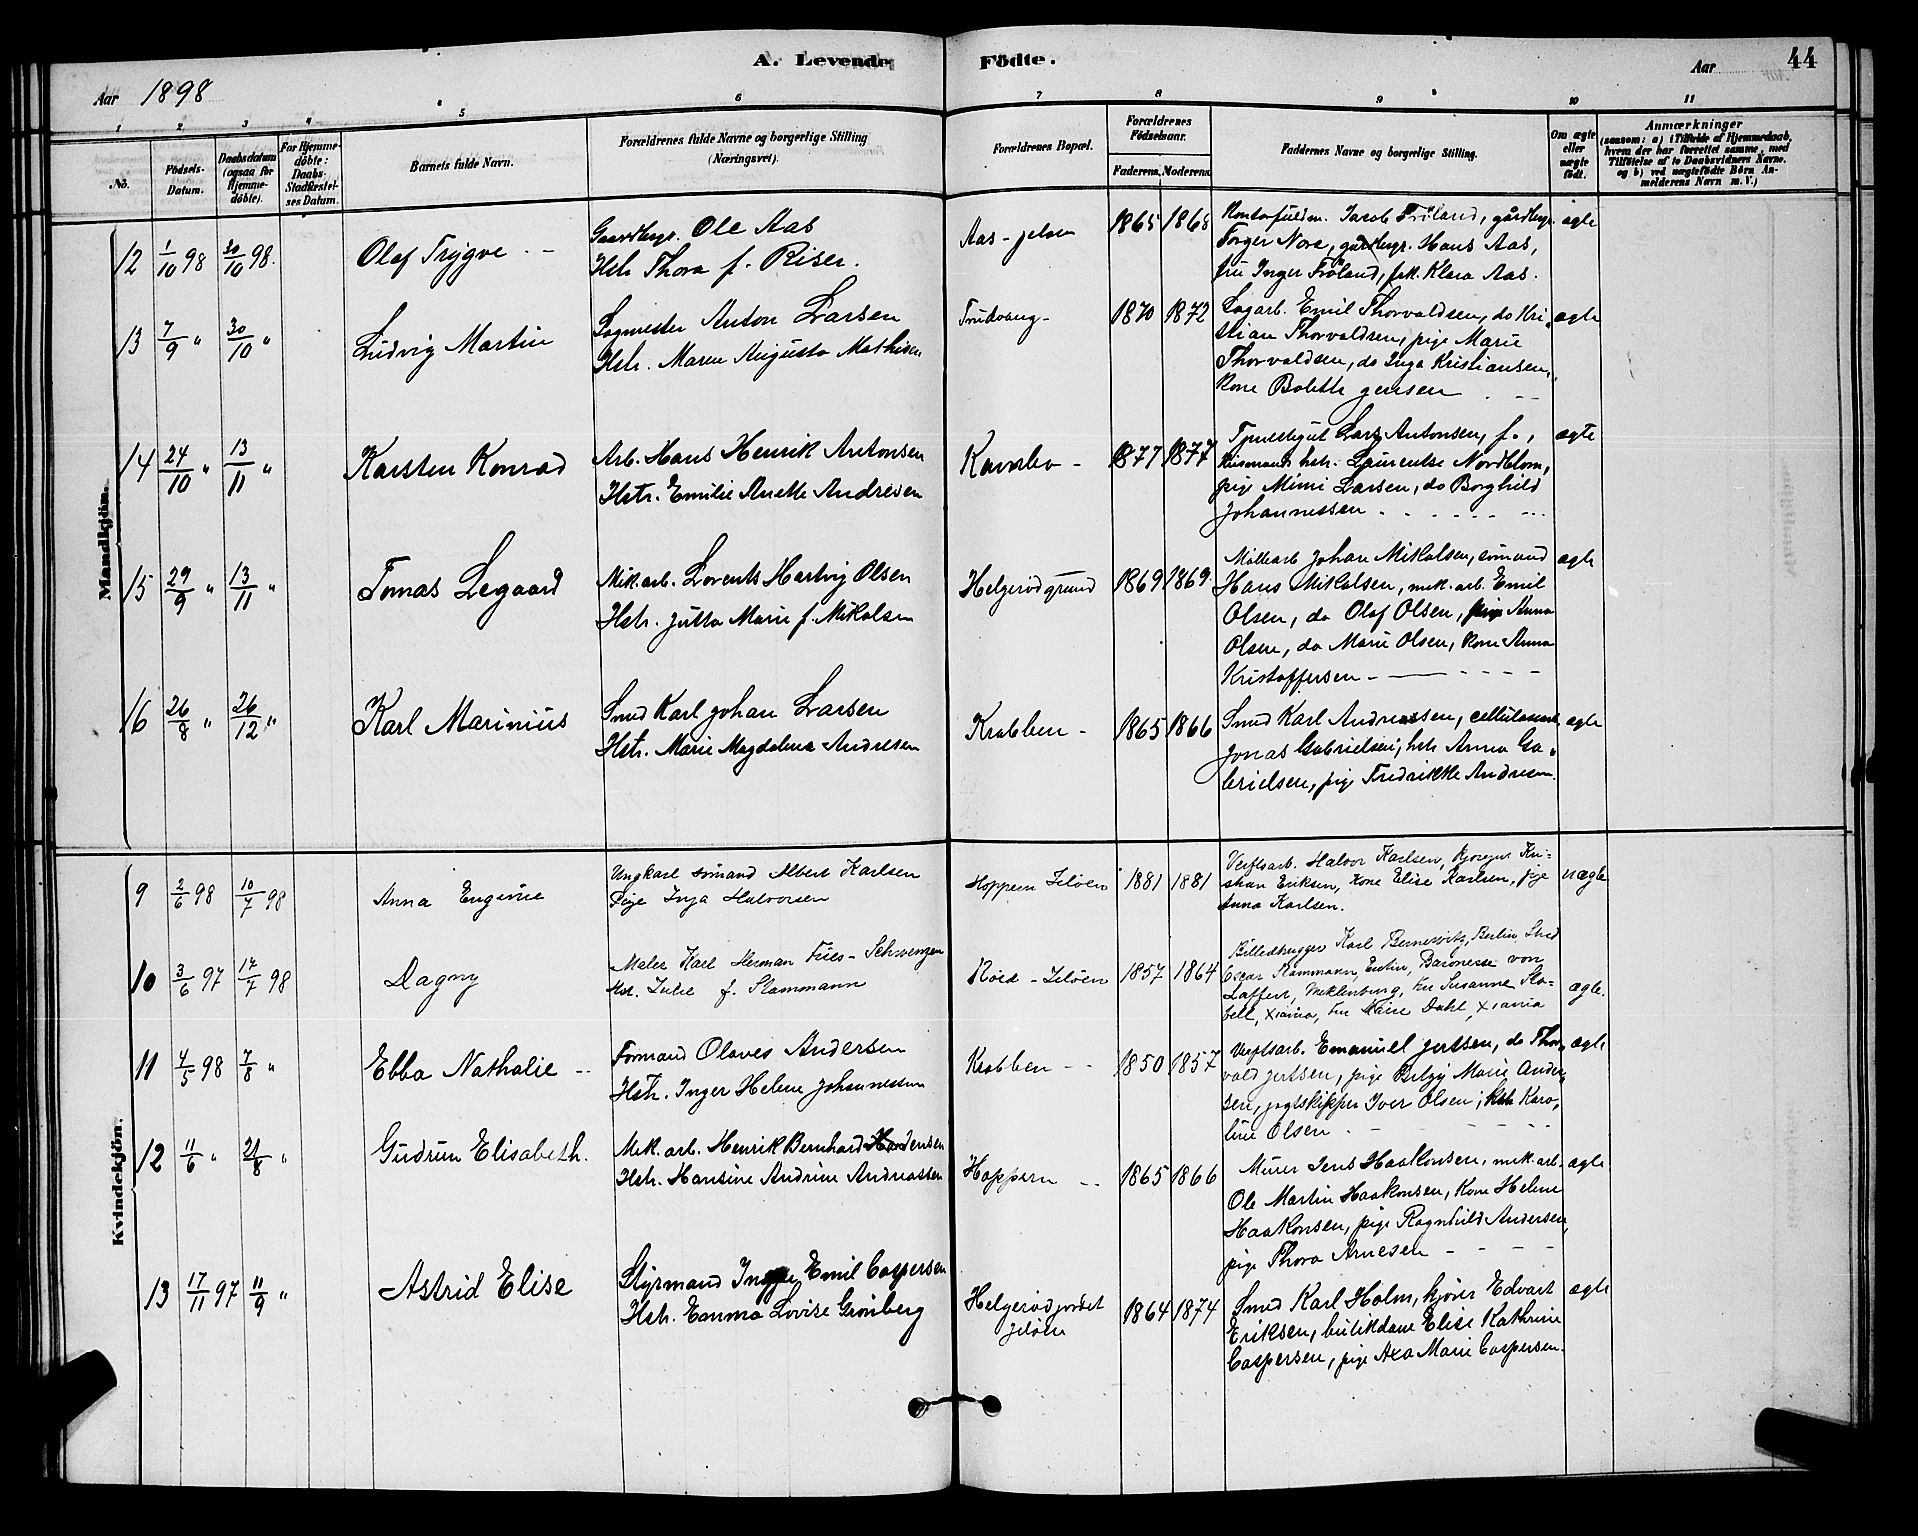 A. Levende Födte.
Aar 1898
Aar 44
1 2 3 4 5 6 7 8 9 10 11
No.
Födsels-
Datum.
Daabsdatum
(ogsaa for
Hjemme-
döbte).
For Hjemme-
döbte:
Daabs-
Stadfæstel-
ses Datum.
Barnets fulde Navn.
Forældrenes fulde Navne og borgerlige Stilling
(Næringsvei).
Forældrenes Bopæl.
Forældrenes
Födselsaar.
Faderens. Moderens.
Faddernes Navne og borgerlige Stilling.
Om ægte
eller
uægte
födt.
Anmærkninger
(saasom: a) i Tilfælde af Hjemmedaab,
hvem der har forrettet samme, med
Tilföielse af to Daabsvidners Navne.
og b) ved uægtefödte Börn An-
melderens Navn m. V.)
Mandkjön.
12 1/10 98 30/10 98.
Olaf Trygve
Gaardbrgr. Ole Aas
Hstr Thora f. Riser.
Aas - Jeløen
1865 1868
Kontorfuldm. Jacob Fröland, gårdbrgr.
Torger Nore, gårdbrgr. Hans Aas,
fru Inger Fröland, frk. Klara Aas.
ægte
13 7/9 " 30/10 "
Ludvig Martin
Sagmester Anton Larsen
Hstr. Maren Augusta Mathisen
Trudvang -
1870 1872
Sagarb. Emil Thorvaldsen, do Kri-
stian Thorvaldsen, pige Marie
Thorvaldsen, do Inga Kristiansen,
Kone Bolette Jensen
ægte
14 24/10 " 13/11 "
Karsten Konrad
Arb. Hans Henrik Antonsen
Hstr. Emilie Anette Andresen
1877 1877
Lars Antonsen, f.,
hstr. Laurentse Nordblom,
pige Mimi Larsen, do Borghild
Johannessen
ægte
15 29/9 " 13/11 "
Tomas Legaard
Mek.arb. Lorents Hartvig Olsen
Hstr. Jutta Marie f. Mikalsen
Helgerødgrund
1869 1869
Johan Mikalsen, sömand
Hans Mikalsen, mek. arb. Emil
Olsen, do Olaf Olsen, pige Anna
Olsen, do Marie Olsen, Kone Anna
Kristoffersen
ægte
16 26/8 " 26/12 "
Karl Marinius
Smed Karl Johan Larsen
Hstr. Marie Magdalena Andresen
Krabben -
1865 1866
Smed Karl Andreassen, cellulosearb.
Jonas Gabrielsen, hstr Anna Ga-
brielsen, pige Fredrikke Andresen.
ægte
Kvindekjön.
9 2/6 98 10/7 98
Anna Eugenie
Ungkarl sømand Albert Karlsen
Pige Inga Halvorsen
Hoppern Jeløen
1881 1881
Verftsarb. Halvor Karlsen, Kjøregut Kri-
stian Eriksen, Kone Elise Karlsen, pige
Anna Karlsen.
uægte
10 3/6 97 17/7 98
Dagny
Maler Karl Herman Fries-Schwenzen
Hst. Julie f. Stammann
Röed - Jeløen
1857 1864
Billedhugger Karl Bernewitz, Berlin, Stud
Oscar Stammann, Eutin, Baronesse von
Laffert, Meklenburg, Fru Susanne Sla-
bell, Xiania, Fru Marie Dahl, Xiania
ægte.
11 4/5 98 7/8 "
Ebba Nathalie
Formand Olaves Andersen
Hstr. Inger Helene Johannessen
Krabben
1850 1857
Verftsarb. Emanuel Jertsen, do Thor-
vald Jertsen, pige Marie Ander-
sen, jagtskipper Iver Olsen, hstr Karo-
line Olsen
ægte
12 11/6 " 21/8 "
Gudrun Elisabeth.
Mek. arb. Henrik Bernhard
Hstr. Hansine Andrine Andreassen
Hoppern
1865 1866
Murer Jens Haakonsen, mek.arb.
Ole Martin Haakonsen, Kone Helene
Haakonsen, pige Ragnhild Andersen,
pige Thora Arnesen
ægte
13 17/11 97 11/9 "
Astrid Elise
Styrmand Emil Caspersen
Hstr. Emma Lovise Grönberg
Helgerødjordet
Jeløen
1864 1874
Smed Karl Holm, kjører Edvart
Eriksen, butikdame Elise Kathrine
Caspersen, pige Axa Marie Caspersen.
ægte